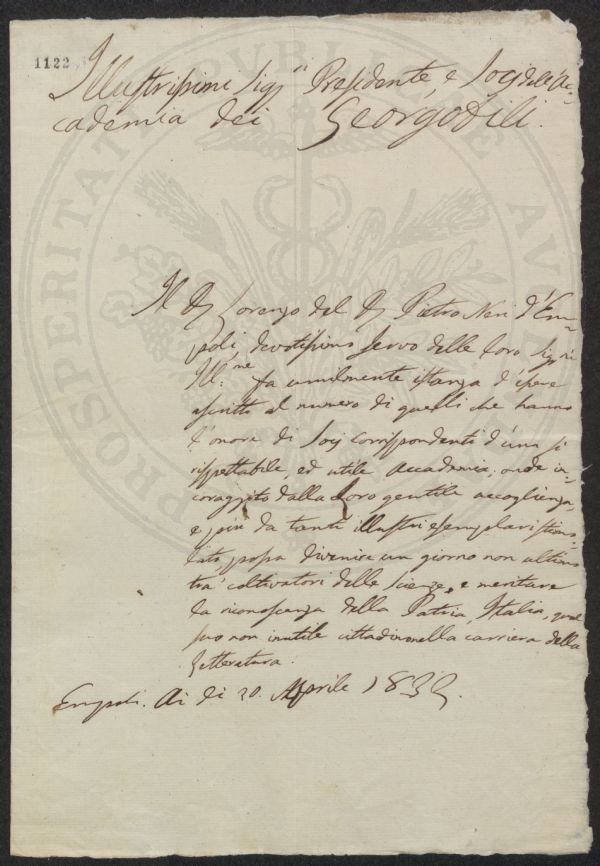 1122
Illustrissimi Sigg.ri Presidente, e Socj dell'Ac-
cademia dei Georgofili.
Il D. Lorenzo del D. Pietro Neri d'Em-
poli, devotissimo servo delle Loro Sig.rie
Ill:me fa umilmente istanza d'essere
ascritto al numero di quelli che hanno
l'onore di Socj corrispondenti d'una sì
rispettabile, ed utile Accademia; onde in-
coraggito dalla Loro gentile accoglienza,
e più da tanti illustri esemplari stimo-
lato possa divenire un giorno non ultimo
tra' coltivatori delle Scienze, e meritare
la riconoscenza della Patria, Italia, qual
suo non inutile cittadino nella carriera della
Letteratura.
Empoli. Ai dì 20. Aprile
PROSPERITATI PUBLICAE AUGENDAE